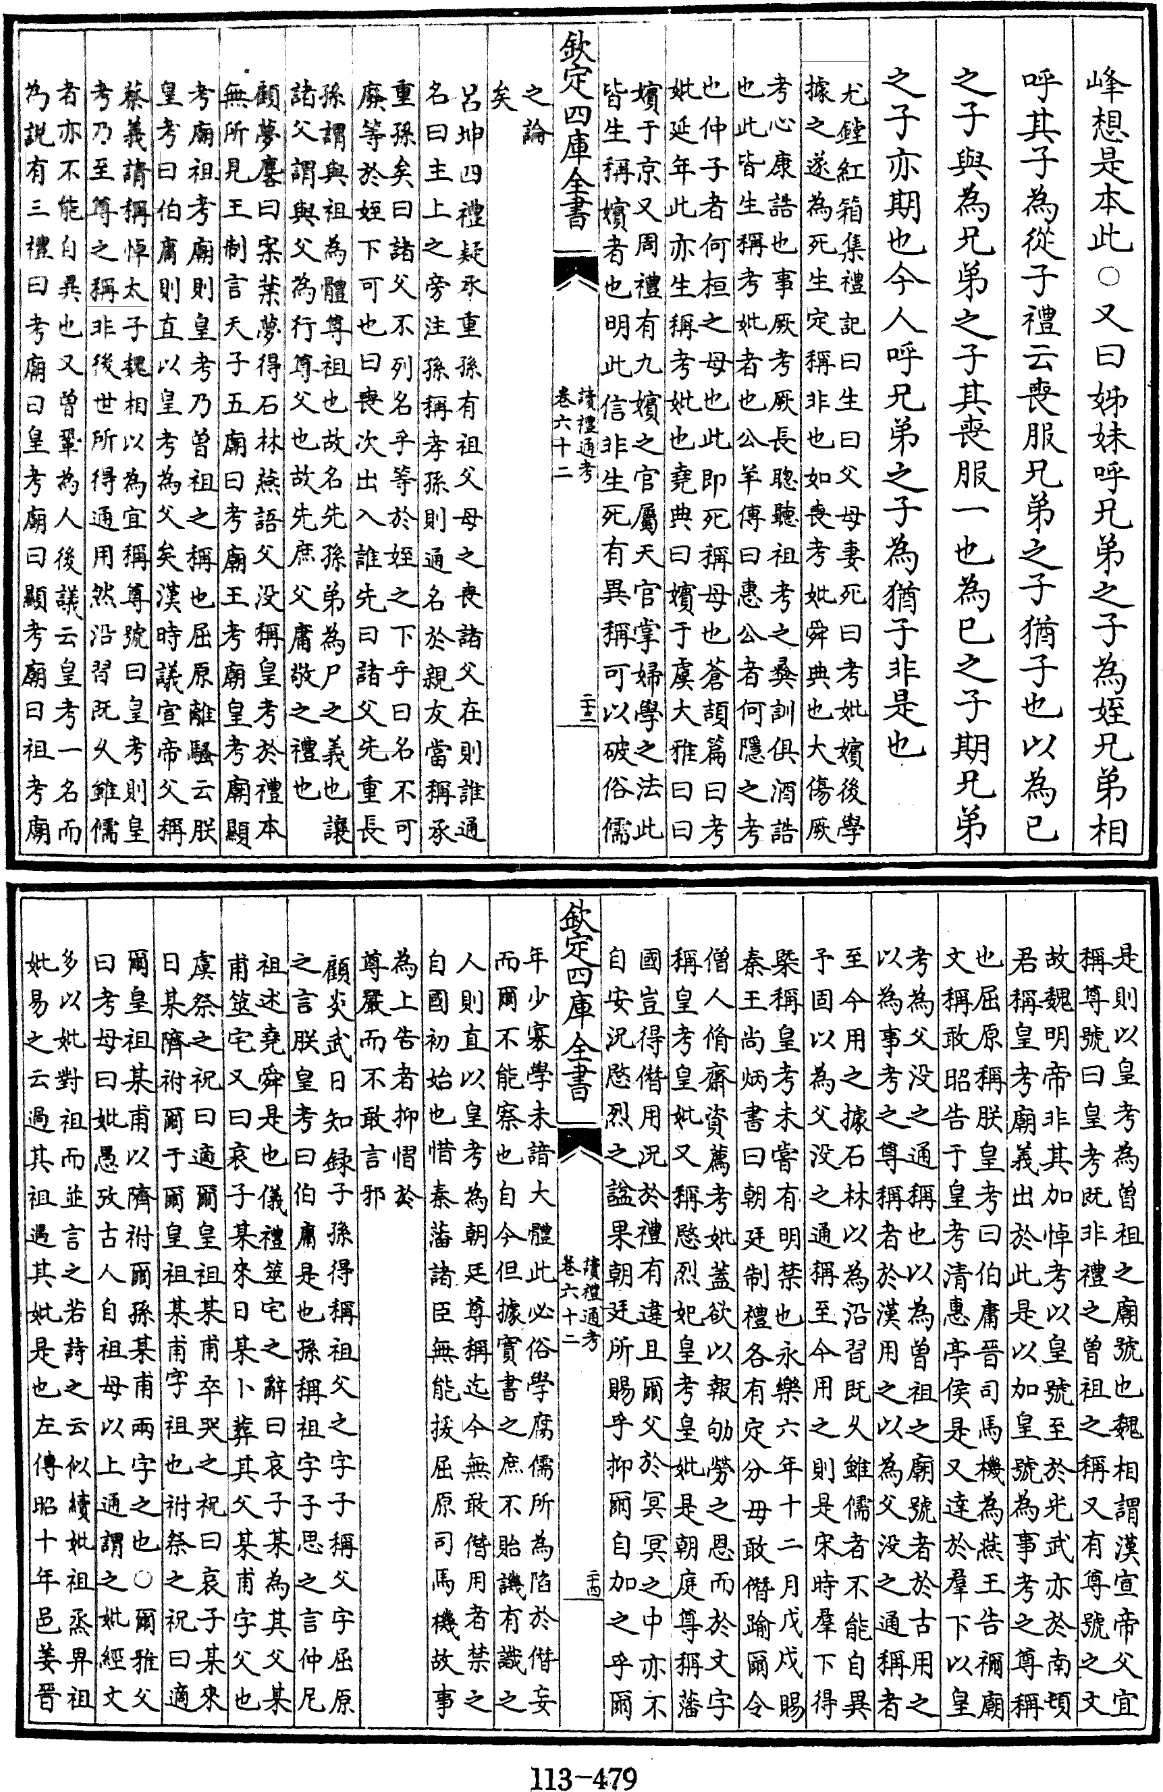 峰想是本此○又曰姊妹呼兄弟之子為姪兄弟相
呼其子為從子禮云喪服兄弟之子猶子也以為已
之子與為兄弟之子其喪服一也為已之子期兄弟
之子亦期也今人呼兄弟之子為猶子非是也
尤鏜紅箱集禮記曰生曰父母妻死曰考妣嬪後學
據之遂為死生定稱非也如喪考妣舜典也大傷厥
考心康誥也事厥考厥長聰聽祖考之彝訓俱酒誥
也此皆生稱考妣者也公羊傳曰惠公者何隱之考
也仲子者何桓之母也此即死稱母也蒼頡篇曰考
妣延年此亦生稱考妣也堯典曰嬪于虞大雅曰曰
嬪于京又周禮有九嬪之官屬天官掌婦學之法此
皆生稱嬪者也明此信非生死有異稱可以破俗儒
欽定四庫全書
讀禮通考
卷六十二
二十三
之論
矣
呂坤四禮疑承重孫有祖父母之喪諸父在則誰通
名曰主上之旁注孫稱孝孫則通名於親友當稱承
重孫矣曰諸父不列名乎等於姪之下乎曰名不可
廢等於姪下可也曰喪次出入誰先曰諸父先重長
孫謂與祖為體尊祖也故名先孫弟為尸之義也讓
諸父謂與父為行尊父也故先庶父庸敬之禮也
顧夢麐曰案葉夢得石林燕語父没稱皇考於禮本
無所見王制言天子五廟曰考廟王考廟皇考廟顯
考廟祖考廟則皇考乃曾祖之稱也屈原離騷云朕
皇考曰伯庸則直以皇考為父矣漢時議宣帝父稱
蔡義請稱悼太子魏相以為宜稱尊號曰皇考則皇
考乃至尊之稱非後世所得通用然沿習既久雖儒
者亦不能自異也又曾鞏為人後議云皇考一名而
為説有三禮曰考廟曰皇考廟曰顯考廟曰祖考廟
是則以皇考為曾祖之廟號也魏相謂漢宣帝父宜
稱尊號曰皇考既非禮之曾祖之稱又有尊號之文
故魏明帝非其加悼考以皇號至於光武亦於南頓
君稱皇考廟義出於此是以加皇號為事考之尊稱
也屈原稱朕皇考曰伯庸晉司馬機為燕王告禰廟
文稱敢昭告于皇考清惠亭侯是又達於羣下以皇
考為父没之通稱也以為曾祖之廟號者於古用之
以為事考之尊稱者於漢用之以為父没之通稱者
至今用之據石林以為沿習既久雖儒者不能自異
予固以為父没之通稱至今用之則是宋時羣下得
槩稱皇考未嘗有明禁也永樂六年十二月戊戌賜
秦王尚炳書曰朝廷制禮各有定分毋敢僭踰爾令
僧人脩齋資薦考妣蓋欲以報劬勞之恩而於文字
稱皇考皇妣又稱愍烈妃皇考皇妣是朝庭尊稱藩
國豈得僭用況於禮有違且爾父於冥冥之中亦不
自安況愍烈之諡果朝廷所賜乎抑爾自加之乎爾
欽定四庫全書
讀禮通考
卷六十二
二十四
年少寡學未諳大體此必俗學腐儒所為陷於僭妄
而爾不能察也自今但據實書之庶不貽譏有識之
人則直以皇考為朝廷尊稱迄今無敢僭用者禁之
自國初始也惜秦藩諸臣無能援屈原司馬機故事
為上告者抑慴於
尊嚴而不敢言邪
顧炎武日知録子孫得稱祖父之字子稱父字屈原
之言朕皇考曰伯庸是也孫稱祖字子思之言仲尼
祖述堯舜是也儀禮筮宅之辭曰哀子某為其父某
甫筮宅又曰哀子某來日某卜葬其父某甫字父也
虞祭之祝曰適爾皇祖某甫卒哭之祝曰哀子某來
日某隮祔爾于爾皇祖某甫字祖也祔祭之祝曰適
爾皇祖某甫以隮祔爾孫某甫兩字之也○爾雅父
曰考母曰妣愚攷古人自祖母以上通謂之妣經文
多以妣對祖而並言之若詩之云似續妣祖烝畀祖
妣易之云過其祖遇其妣是也左傳昭十年邑姜晉
113-479